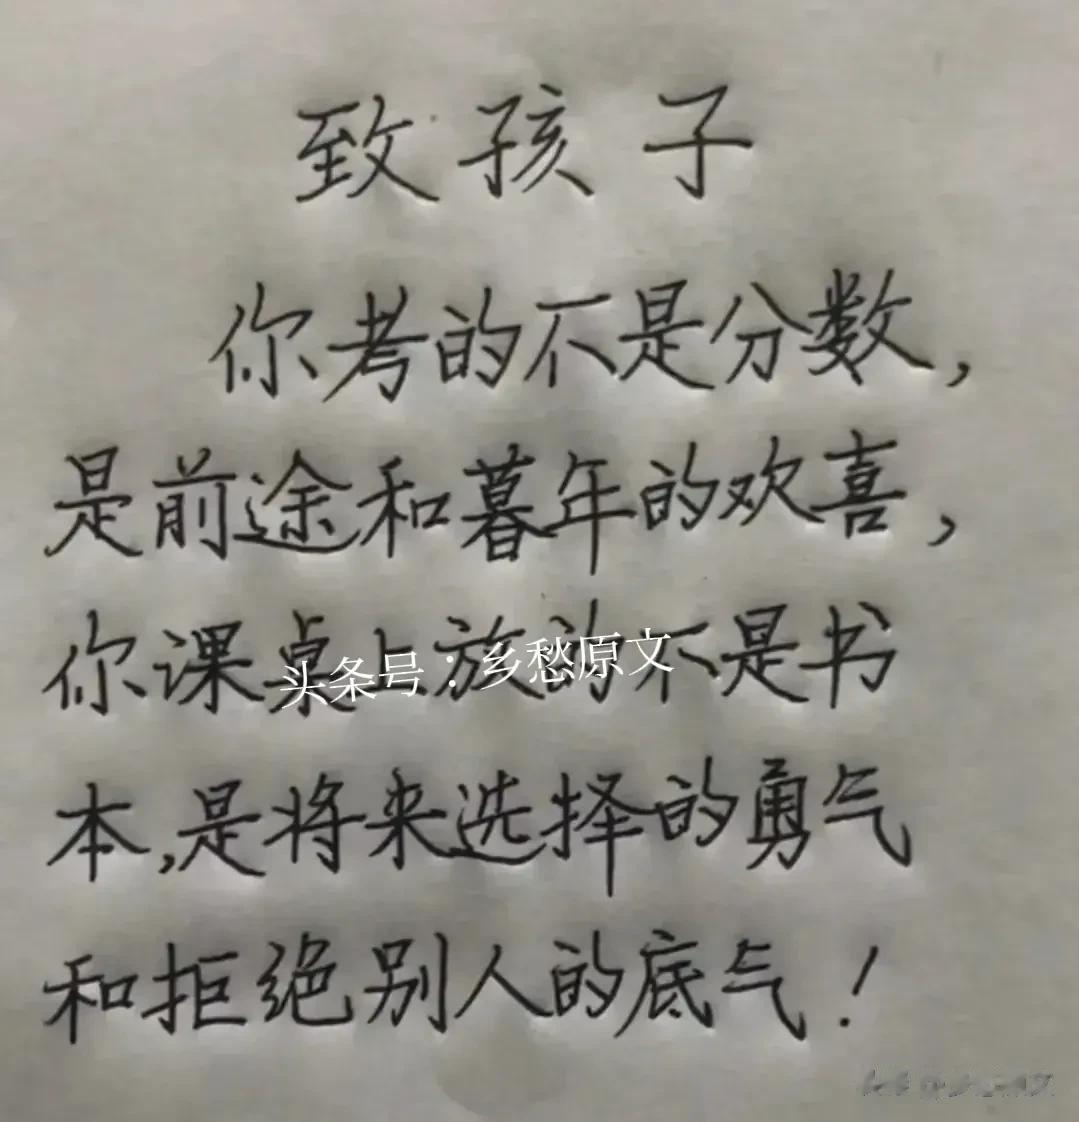 致孩子
你考的不是分数，
是前途和暮年的欢喜，
你课桌上放的不是书
头条号：乡愁原文
本，是将来选择的勇气
和拒绝别人的底气！